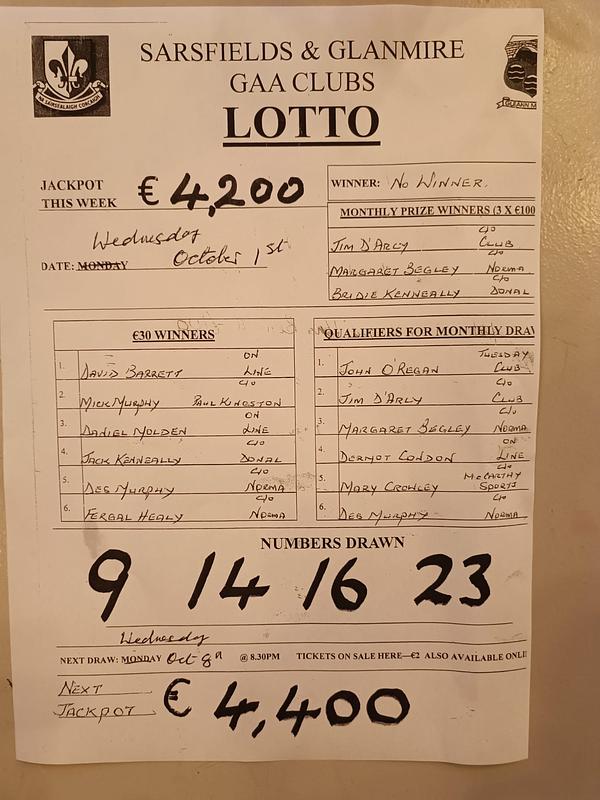 SARSFIELDS & GLANMIRE
GAA CLUBS
LOTTO
NA SAIRSEALAIGH CORCAIGH
GLEANN M
JACKPOT
THIS WEEK € 4,200
Wednesday
DATE: MONDAY October 1st
WINNER: No WINNER.
MONTHLY PRIZE WINNERS (3 X €100
JIM D'ARCY c/o CLUB
MARGARET BEGLEY c/o NORMA
BRIDIE KENNEALLY c/o DONAL
€30 WINNERS
1. DAVID BARRETT ON LINE
2. MICK MURPHY c/o PAUL KINGSTON
3. DANIEL MOLDEN ON LINE
4. JACK KENNEALLY c/o DONAL
5. DES MURPHY c/o NORMA
6. FERGAL HEALY c/o NORMA
QUALIFIERS FOR MONTHLY DRAW
1. JOHN O'REGAN TUESDAY CLUB
2. JIM D'ARCY c/o CLUB
3. MARGARET BEGLEY c/o NORMA
4. DERMOT CONDON ON LINE
5. MARY CROWLEY c/o McCARTHY SPORTS
6. DES MURPHY c/o NORMA
NUMBERS DRAWN
9 14 16 23
Wednesday
NEXT DRAW: MONDAY Oct 8th @ 8.30PM TICKETS ON SALE HERE—€2 ALSO AVAILABLE ONLI
NEXT
JACKPOT € 4,400